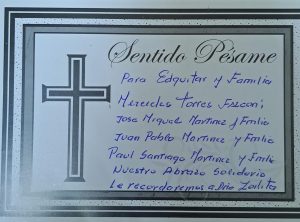 Sentido Pésame
Para Edquitar y Familia
Mercedes Torres
Jose Miguel Martinez y Fmlia
Juan Pablo Martinez y Fmlia
Paul Santiago Martinez y Fmlia
Nuestro Abrazo Solidario
Le recordaremos a Dña